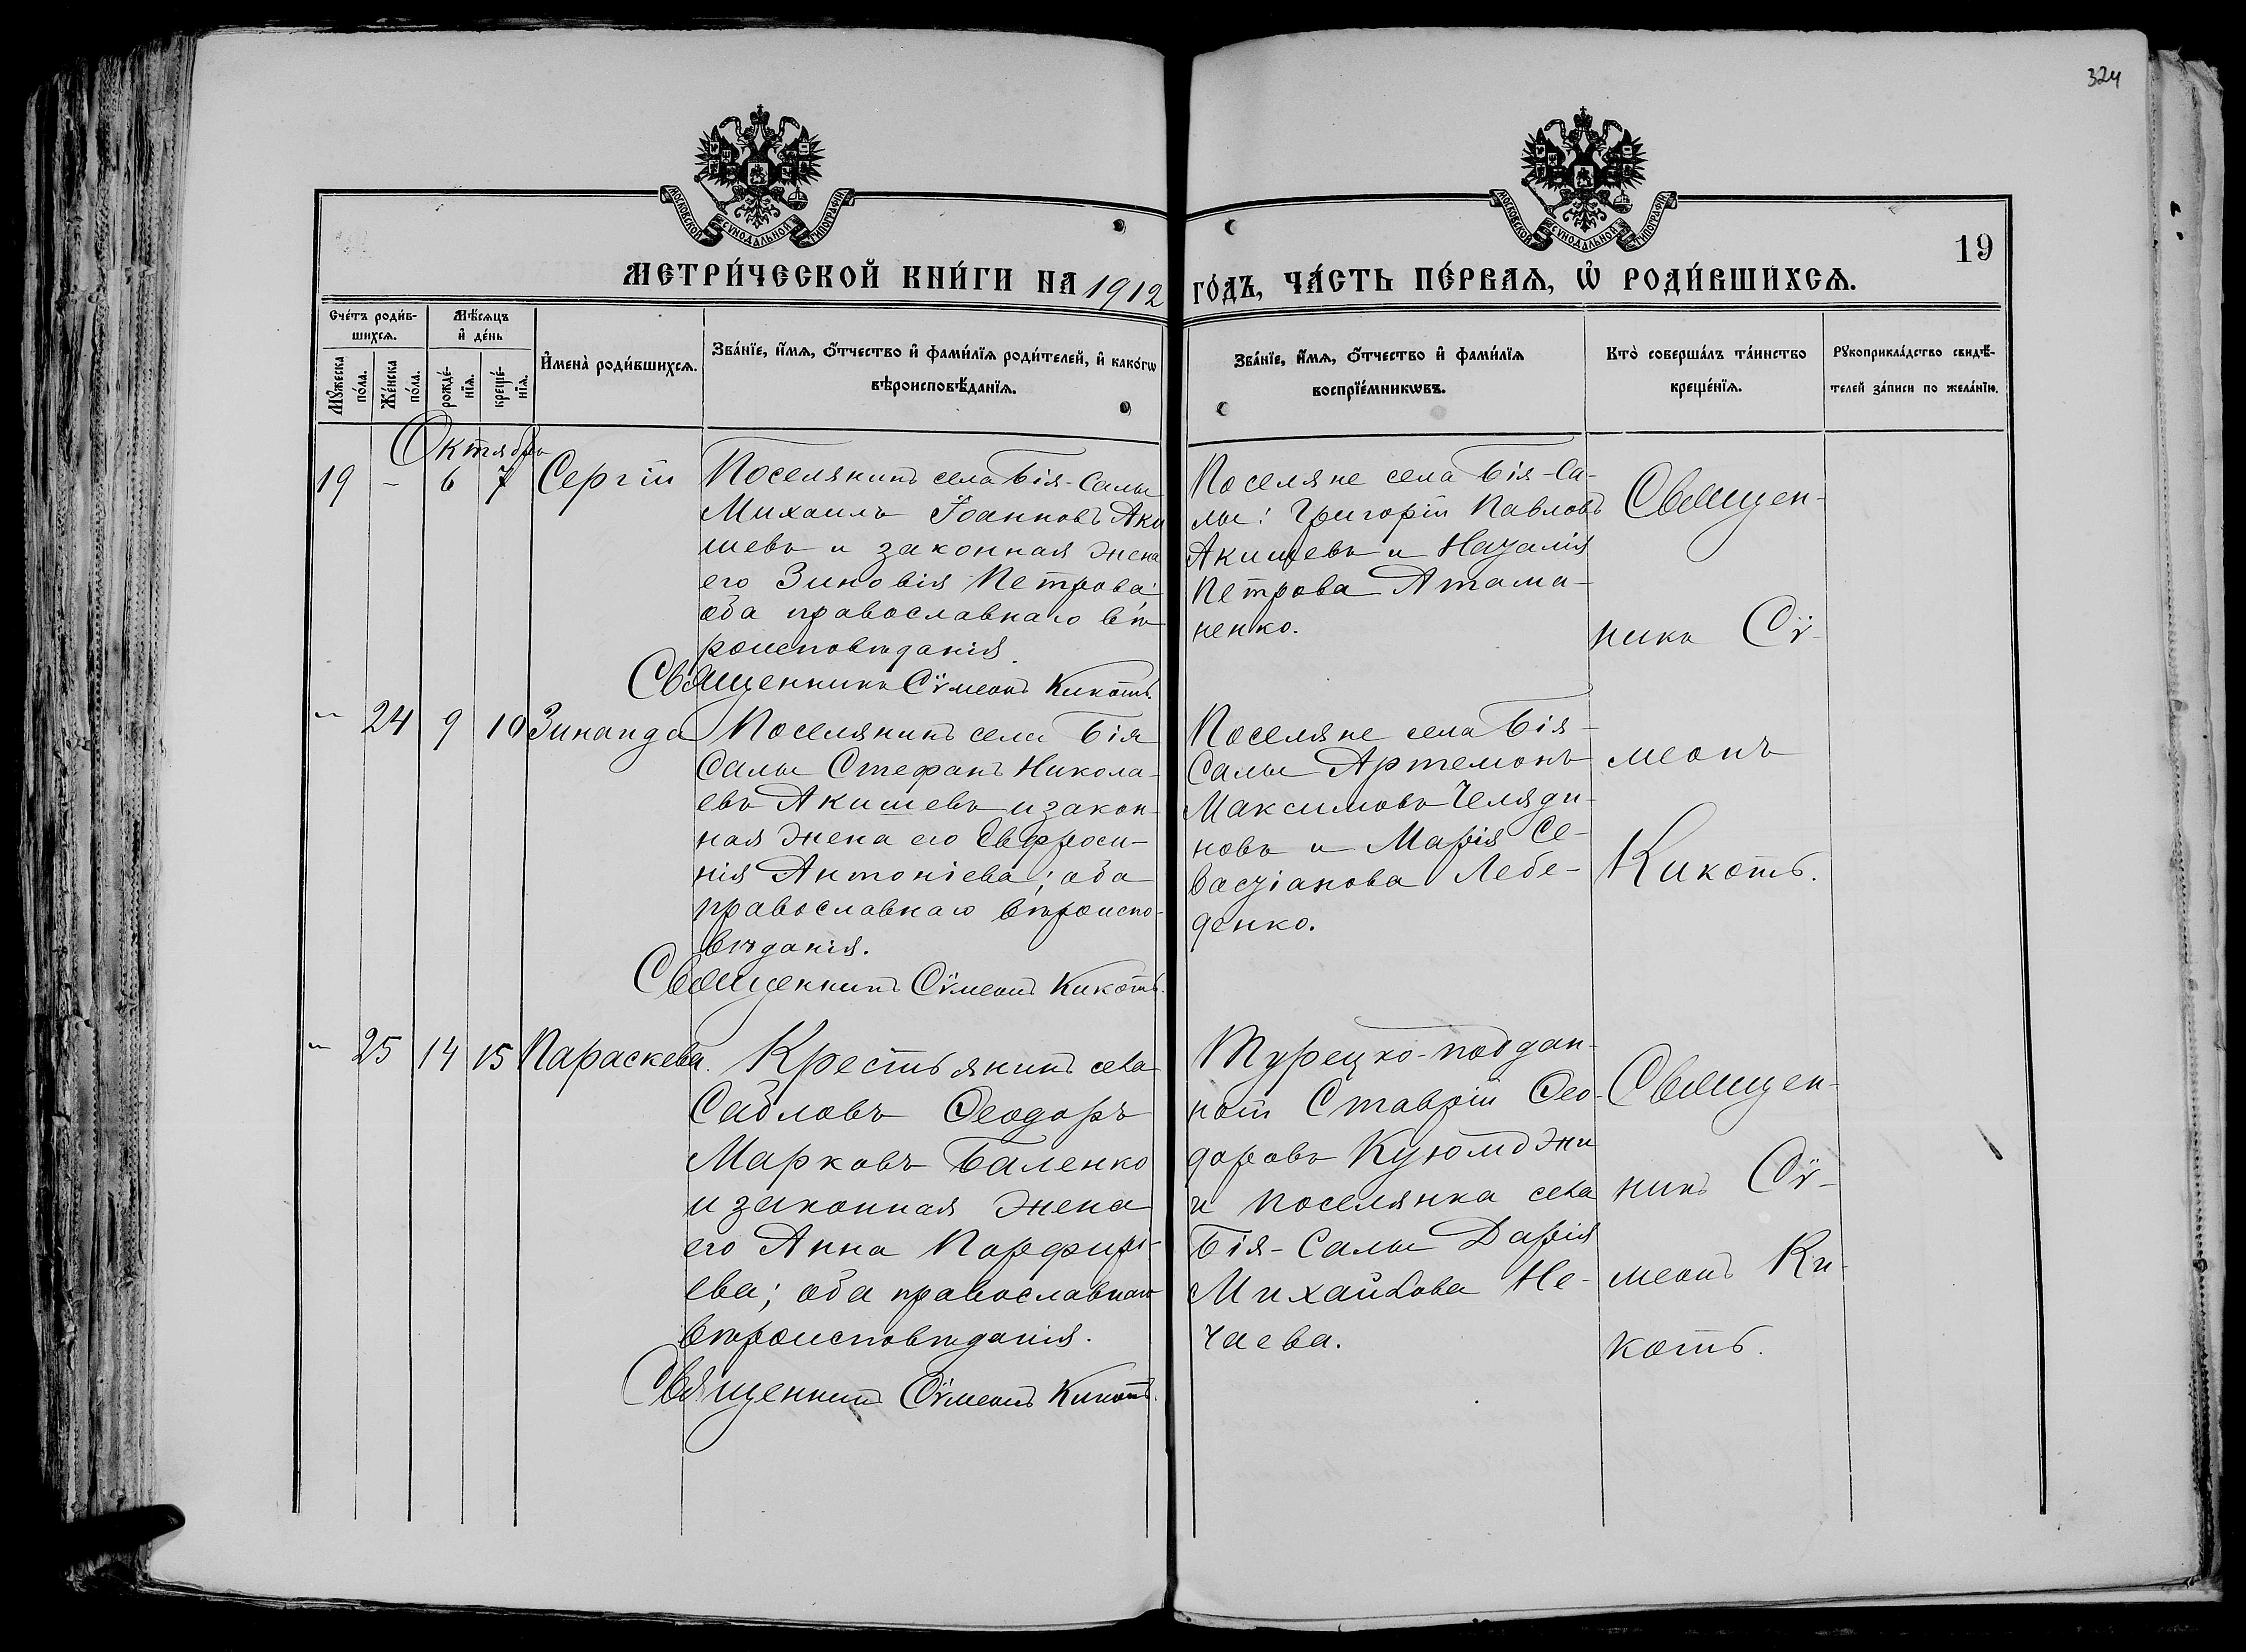 324
МОСКОВСКОЙ СѴНОДАЛЬНОЙ ТИПОГРАФІИ
МОСКОВСКОЙ СѴНОДАЛЬНОЙ ТИПОГРАФІИ
19
МЕТРИ́ЧЕСКОЙ КНИ́ГИ НА 1912 ГО́ДЪ, ЧА́СТЬ ПЕ́РВАЯ, Ѡ РОДИ́ВШИХСЯ.
Сче́тъ роди́в-
шихся.
Мѣ́сяцъ
и҆ де́нь
Мꙋ́жеска
по́ла.
Же́нска
по́ла.
рожде́-
нїя.
креще́-
нїя.
И҆мена̀ роди́вшихся.
Зва́нїе, и҆́мя, ѻ҆́тчество и҆ фами́лїя роди́телей, и҆ како́гѡ
вѣроисповѣ́данїя.
Зва́нїе, и҆́мя, ѻ҆́тчество и҆ фами́лїя
воспрїе́мникѡвъ.
Кто̀ соверша́лъ та́инство
креще́нїя.
Рꙋкоприкла́дство свидѣ́-
телей за́писи по жела́нїю.
Октябрь
19 - 6 7 Сергій
Поселянинъ села Бія-Салы
Михаилъ Іоанновъ Аки
шевъ и законная жена
его Зиновія Петрова:
оба православнаго вѣ
роисповѣданія.
Священникъ Сѵмеонъ Кикоть.
Поселяне села Бія-Са-
лы: Григорій Павловъ
Акишевъ и Наталія
Петрова Атама-
ненко.
Священ-
никъ Сѵ-
„ 24 9 10 Зинаида
Поселянинъ села Бія
Салы Стефанъ Никола-
евъ Акишевъ и закон-
ная жена его Евфроси-
нія Антоніева; оба
православнаго вѣроиспо-
вѣданія.
Священникъ Сѵмеонъ Кикоть.
Поселяне села Бія-
Салы Артемонъ
Максимовъ Челяди-
новъ и Марія Се-
вастіанова Лебе-
денко.
меонъ
Кикоть.
„ 25 14 15 Параскева.
Крестьянинъ села
Сабловъ Ѳеодоръ
Марковъ Баленко
и законная жена
его Анна Порфирі-
ева; оба православнаго
вѣроисповѣданія.
Священникъ Сѵмеонъ Кикоть.
Турецко-поддан-
ный Ставрій Ѳео-
доровъ Куюмджи
и поселянка села
Бія-Салы Дарія
Михайлова Не-
чаева.
Священ-
никъ Сѵ-
меонъ Ки-
коть.